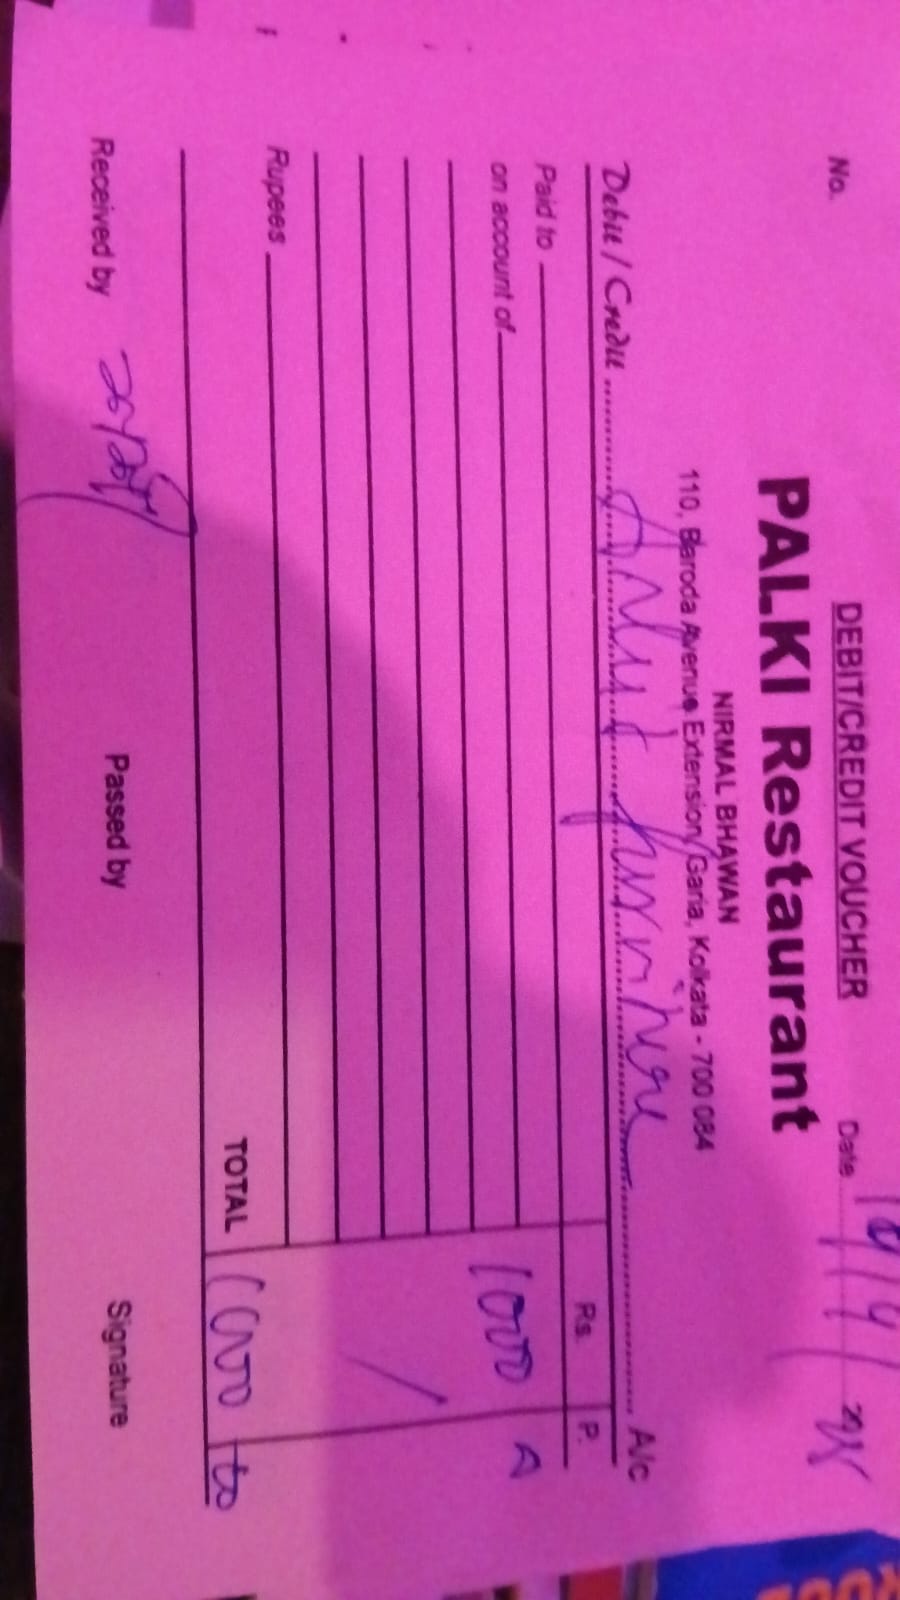 DEBIT/CREDIT VOUCHER
No. Date 20
PALKI Restaurant
NIRMAL BHAWAN
110, Baroda Avenue Extension, Garia, Kolkata - 700 084
Debit / Credit A/c
Rs. P.
Paid to
on account of 1000
Rupees
TOTAL 1000
Received by Passed by Signature